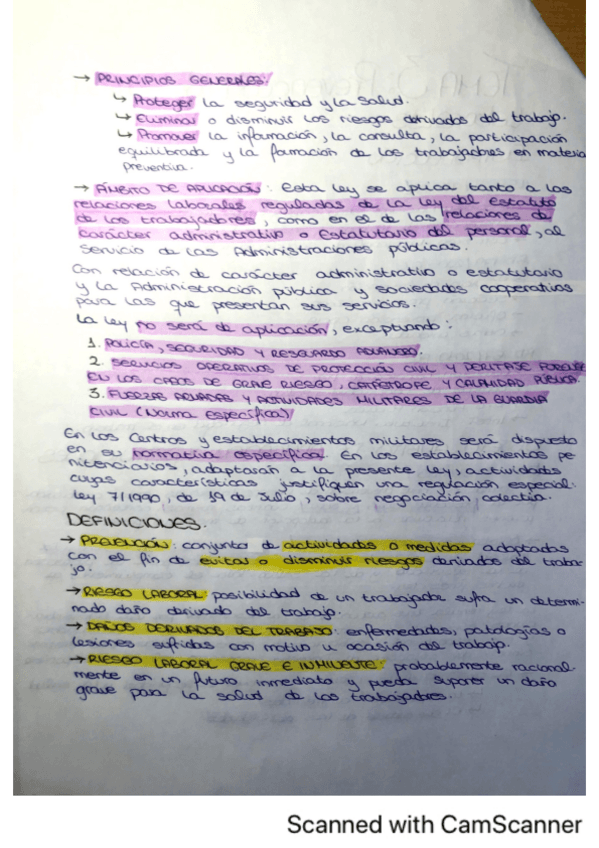 → PRINCIPIOS GENERALES:
↳ Proteger la seguridad y la salud.
↳ Eliminar o disminuir los riesgos derivados del trabajo.
↳ Promover la información, la consulta, la participación
equilibrada y la formación de los trabajadores en materia
preventiva.
→ ÁMBITO DE APLICACIÓN: Esta ley se aplica tanto a las
relaciones laborales reguladas de la ley del estatuto
de los trabajadores, como en el de las relaciones de
carácter administrativo o Estatutario del personal, al
servicio de las Administraciones públicas.
Con relación de carácter administrativo o estatutario
y la Administración pública y sociedades cooperativas
para las que presentan sus servicios.
La ley no será de aplicación, exceptuando:
1. POLICÍA, SEGURIDAD Y RESGUARDO ADUANERO.
2. SERVICIOS OPERATIVOS DE PROTECCIÓN CIVIL Y PERITAJE FORENSE
EN LOS CASOS DE GRAVE RIESGO, CATÁSTROFE Y CALAMIDAD PÚBLICA.
3. FUERZAS ARMADAS Y ACTIVIDADES MILITARES DE LA GUARDIA
CIVIL (Norma específica)
En los Centros y establecimientos militares será dispuesto
en su normativa específica. En los establecimientos pe
nitenciarios, adaptarán a la presente ley, actividades
cuyas características justifiquen una regulación especial.
ley 7/1990, de 19 de Julio, sobre negociación colectiva.
DEFINICIONES.
→ PREVENCIÓN: conjunto de actividades o medidas adoptadas
con el fin de evitar o disminuir riesgos derivados del traba-
jo.
→ RIESGO LABORAL: posibilidad de un trabajador sufra un determi-
nado daño derivado del trabajo.
→ DAÑOS DERIVADOS DEL TRABAJO: enfermedades, patologías o
lesiones sufridas con motivo u ocasión del trabajo.
→ RIESGO LABORAL GRAVE E INMINENTE: probablemente racional-
mente en un futuro inmediato y pueda suponer un daño
grave para la salud de los trabajadores.
Scanned with CamScanner